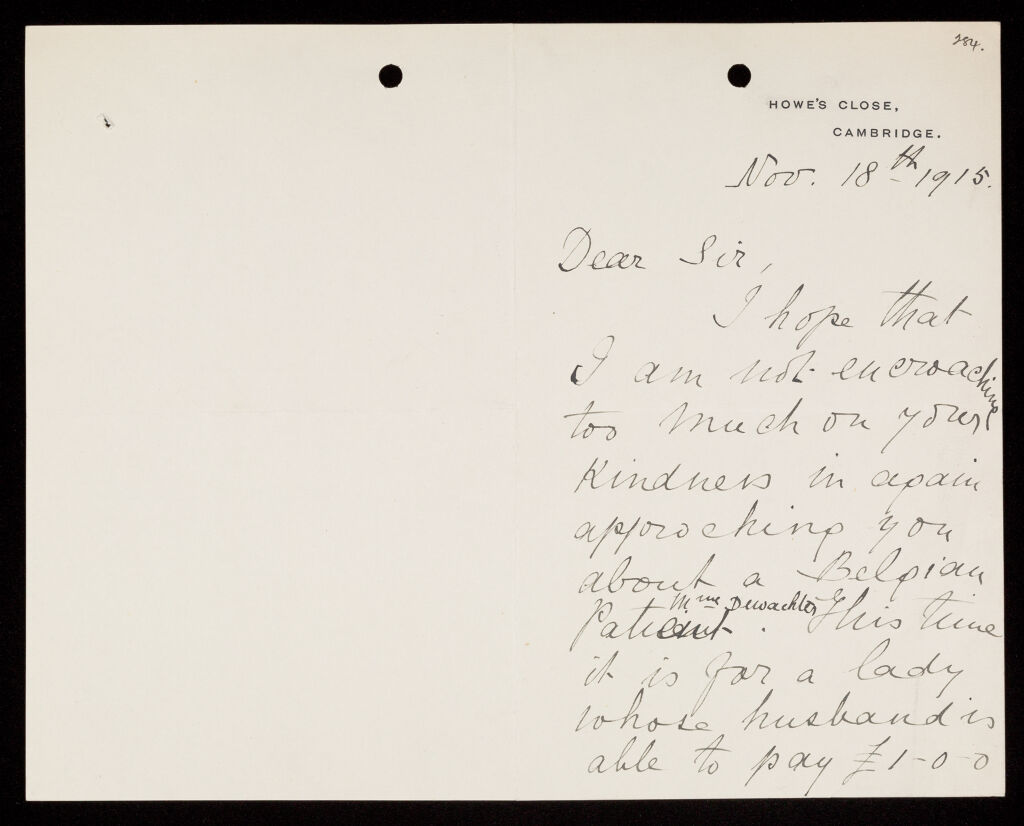 284.
HOWE'S CLOSE,
CAMBRIDGE.
Nov. 18th 1915.
Dear Sir,
I hope that
I am not encroaching
too much on your
kindness in again
approching you
about a Belgian
Mme Dewachter
Patient. This time
it is for a lady
whose husband is
able to pay £1-0-0